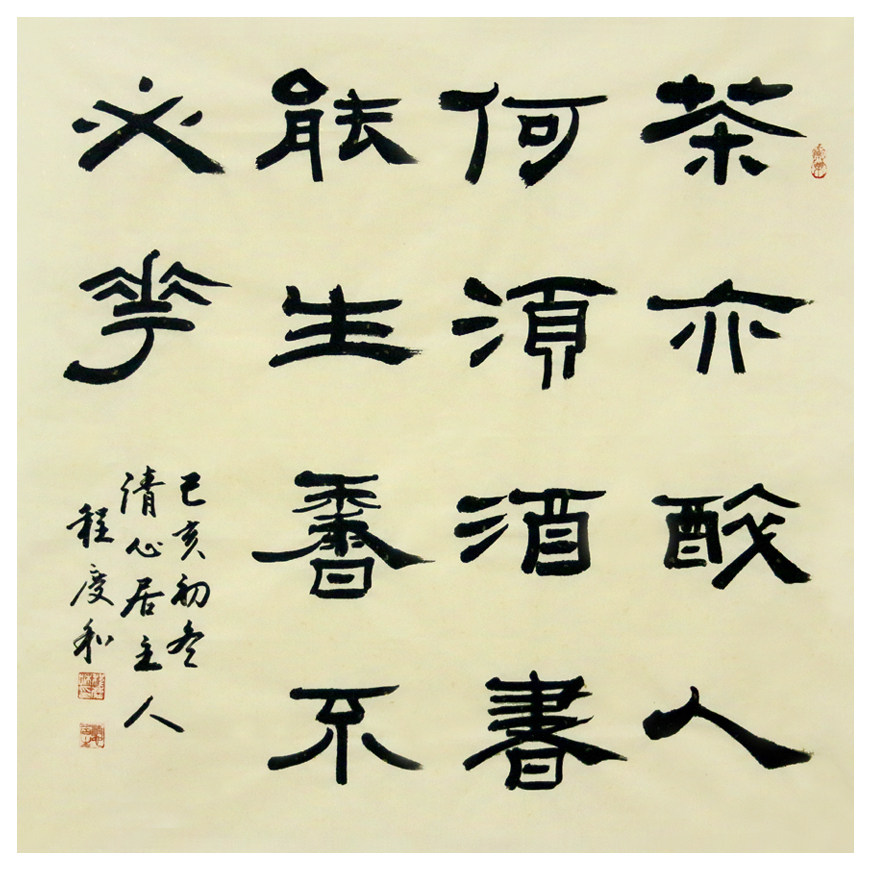 茶亦醉人
何須酒書
能生香不
必花
己亥初冬
清心居主人
程慶和